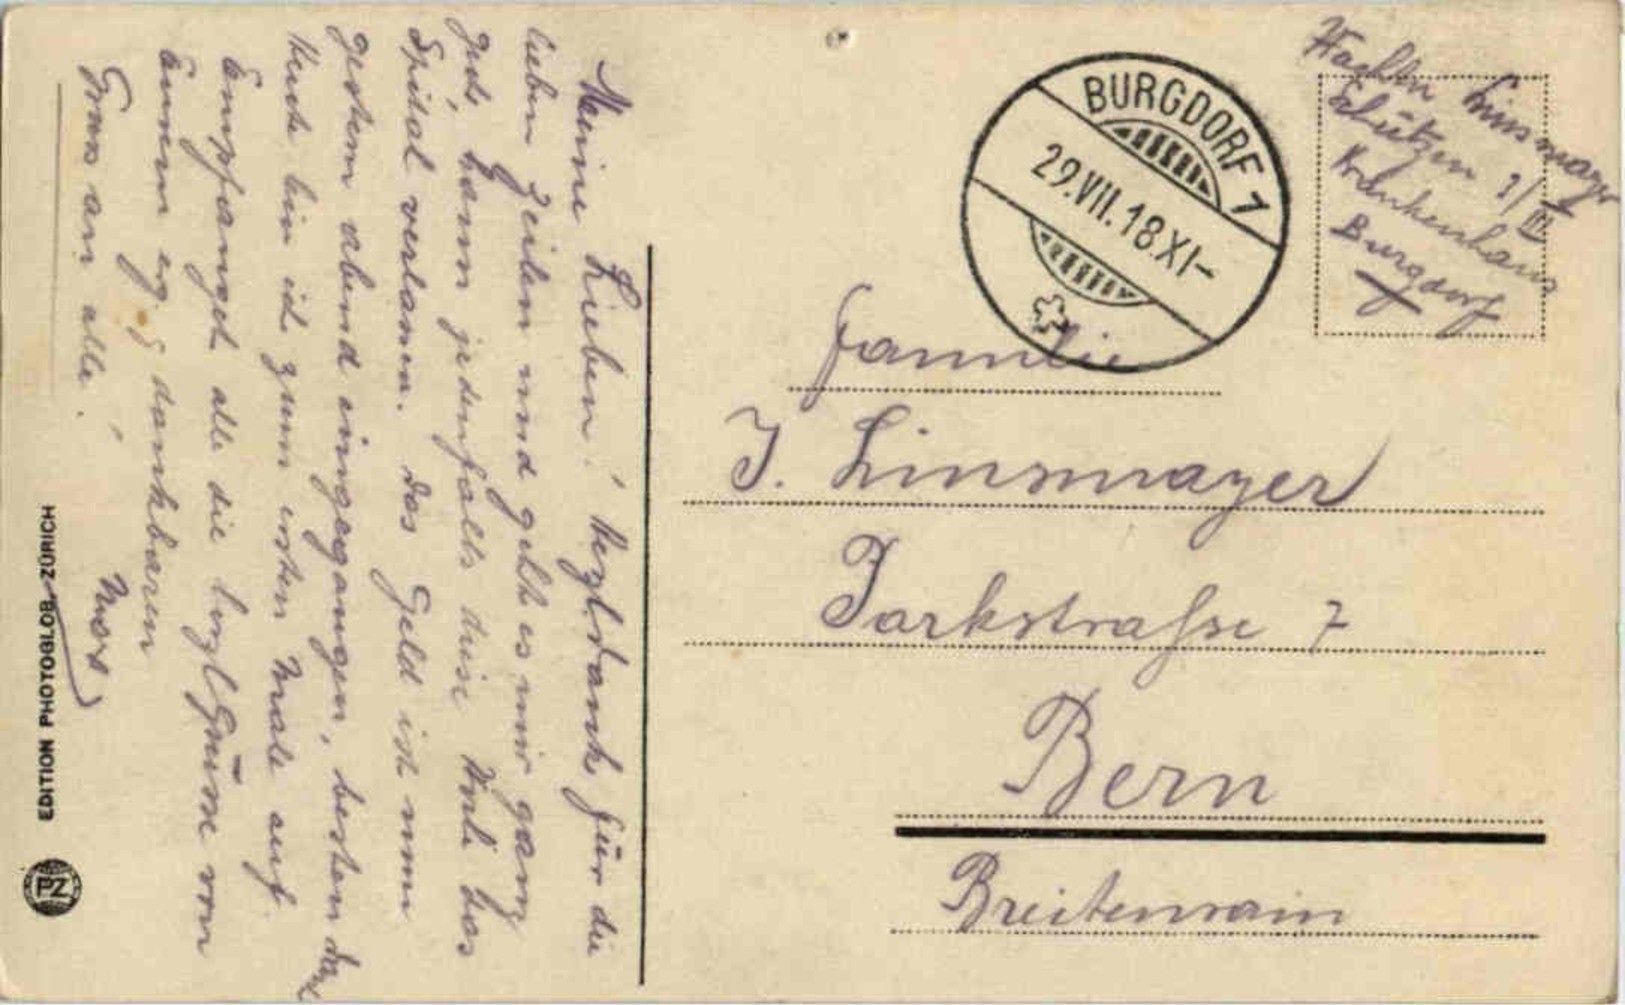 Meine Lieben! Hrzl. Dank für die
lieben Zeilen und geht es mir ganz
gut, kann jedenfalls diese Woche das
Spital verlassen. Das Geld ist nun
gestern abend eingegangen, besten Dank
Heute bin ich zum ersten Male auf.
Empfanget alle die hrzl. Grüsse von
Eurem dankbaren
Gruss an alle!
BURGDORF 1
29.VII.18.XI-
Linsmayer
Schützen 1/III
Krankenhaus
Burgdorf
Familie
J. Linsmayer
Parkstrasse 7
Bern
Breitenrain
EDITION PHOTOGLOB-ZÜRICH
PZ